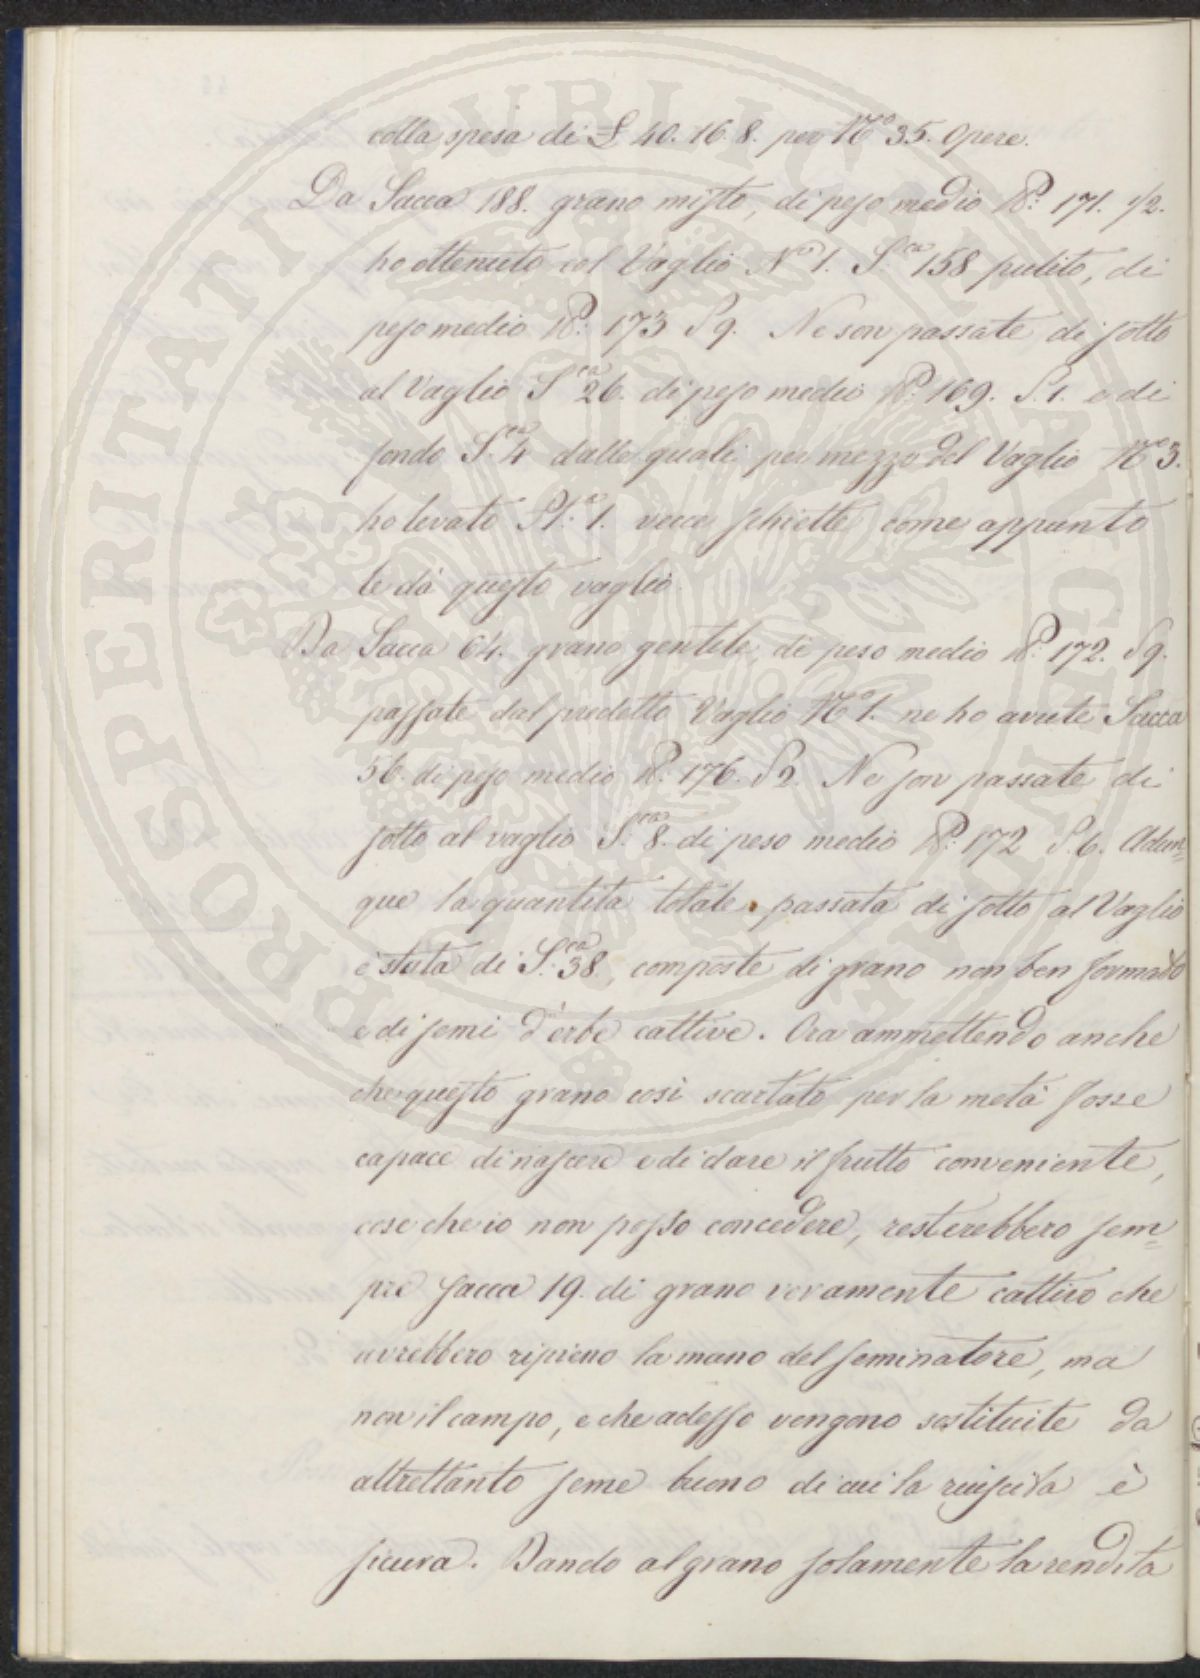 colla spesa di £ 40. 16. 8. per N.º 35. Opere.
Da Sacca 188. grano misto, di peso medio ℔: 171. 1/2.
ho ottenuto col Vaglio Nº 1. S.ca 158 pulito, di
peso medio ℔: 173 S 9. Ne son passate di sotto
al Vaglio S.ca 26. di peso medio ℔: 169. S. 1. e di
fondo S.ca 4 dalle quali per mezzo del Vaglio Nº 3.
ho levato St:a 1. vecce schiette come appunto
le dà questo vaglio.
Da Sacca 64. grano gentile, di peso medio ℔: 172. S 9.
passate dal predetto Vaglio Nº 1. ne ho avute Sacca
56. di peso medio ℔: 176. S 2. Ne son passate di
sotto al vaglio S.ca 8. di peso medio ℔: 172 S. 6. Adun=
que la quantità totale passata di sotto al Vaglio
è stata di S.ca 38, composte di grano non ben formato
e di semi d'erbe cattive. Ora ammettendo anche
che questo grano così scartato per la metà fosse
capace di nascere e di dare il frutto conveniente,
cose che io non posso concedere, resterebbero sem=
pre sacca 19. di grano veramente cattivo che
avrebbero ripieno la mano del seminatore, ma
non il campo, e che adesso vengono sostituite da
altrettanto seme buono di cui la riuscita è
sicura. Dando al grano solamente la rendita
PROSPERITATI PVBLICAE AVGENDAE